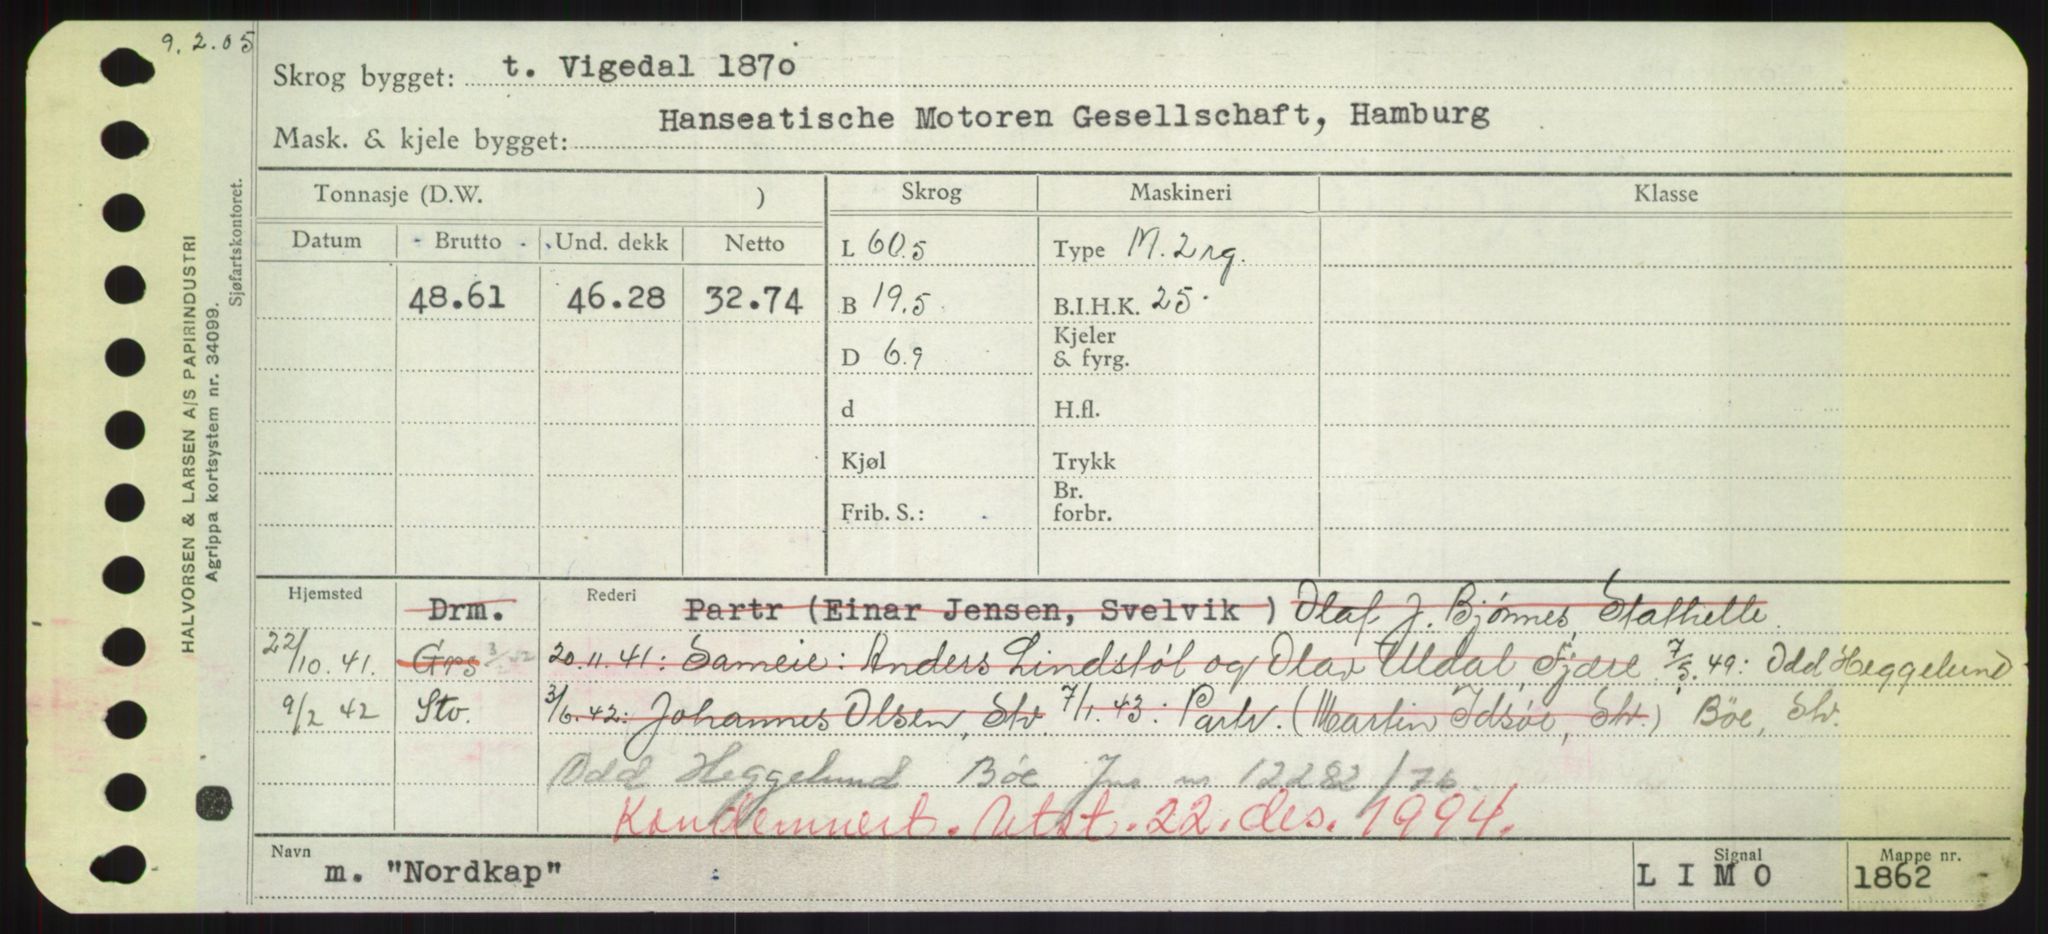 9.2.05
Skrog bygget: t. Vigedal 1870
Mask. & kjele bygget: Hanseatische Motoren Gesellschaft, Hamburg
Tonnasje (D.W. ) Skrog Maskineri Klasse
Datum Brutto Und. dekk Netto L 60.5 Type M. 2rg.
48.61 46.28 32.74 B 19.5 B.I.H.K. 25
D 6.9 Kjeler & fyrg.
d H.fl.
Kjøl Trykk
Frib. S.: Br. forbr.
Hjemsted Drm. Rederi Partr (Einar Jensen, Svelvik ) Olaf J. Bjønnes, Stathelle.
22/10.41. Grs 20.11.41: Sameie: Anders Lindstøl og Olav Uldal, Fjære 7/5.49: Odd Heggelund
9/2 42 Stv. 3/6.42: Johannes Olsen, Stv. 7/1.43: Partr. (Martin Idsøe, Stv.) Böe, Stv.
Odd Heggelund Böe Jnr nr 12282/76.
Kondemnert. Utst. 22. des. 1994.
Navn m. "Nordkap" Signal L I M O Mappe nr. 1862
HALVORSEN & LARSEN A/S PAPIRINDUSTRI
Agrippa kortsystem nr. 34099.
Sjøfartskontoret.